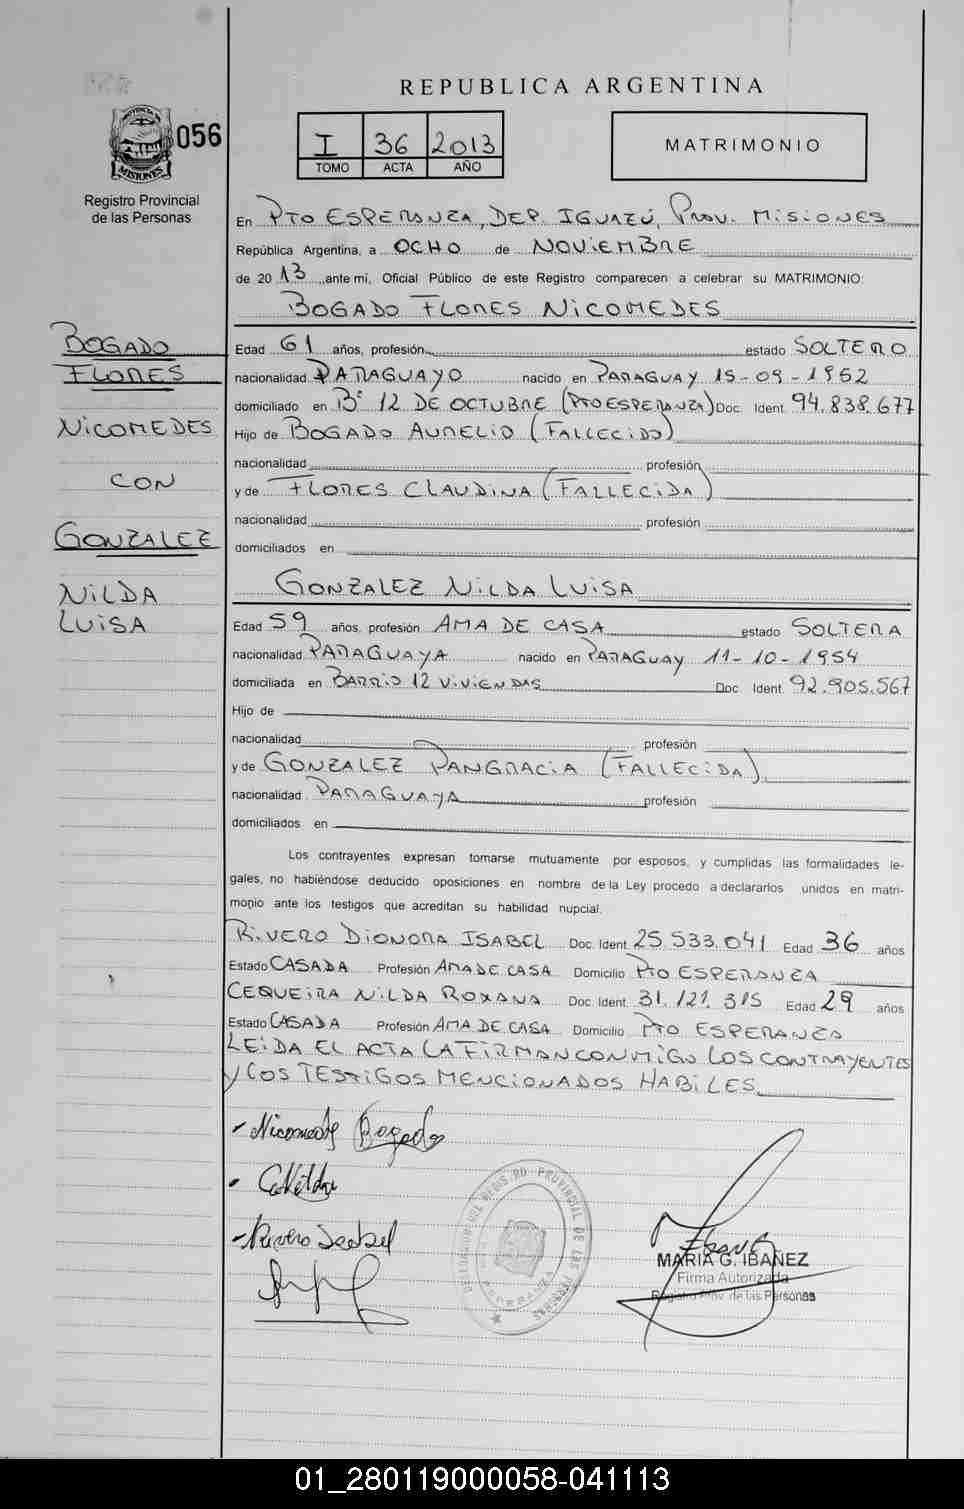 REPUBLICA ARGENTINA
PROVINCIA DE
MISIONES
056
I 36 2013
TOMO ACTA AÑO
MATRIMONIO
Registro Provincial
de las Personas
En PTO ESPERANZA, DEP. IGUAZÚ, PROV. MISIONES
República Argentina, a OCHO de NOVIEMBRE
de 2013, ante mi, Oficial Público de este Registro comparecen a celebrar su MATRIMONIO:
BOGADO FLORES NICOMEDES
BOGADO
FLORES
NICOMEDES
CON
GONZALEZ
NILDA
LUISA
Edad 61 años, profesión estado SOLTERO
nacionalidad PARAGUAYO nacido en PARAGUAY 15-09-1952
domiciliado en Bº 12 DE OCTUBRE (PTO ESPERANZA) Doc. Ident. 94.838.677
Hijo de BOGADO AURELIO (FALLECIDO)
nacionalidad profesión
y de FLORES CLAUDINA (FALLECIDA)
nacionalidad profesión
domiciliados en
GONZALEZ NILDA LUISA
Edad 59 años, profesión AMA DE CASA estado SOLTERA
nacionalidad PARAGUAYA nacido en PARAGUAY 11-10-1954
domiciliada en BARRIO 12 VIVIENDAS Doc. Ident. 92.905.567
Hijo de
nacionalidad profesión
y de GONZALEZ PANGRACIA (FALLECIDA)
nacionalidad PARAGUAYA profesión
domiciliados en
Los contrayentes expresan tomarse mutuamente por esposos, y cumplidas las formalidades le-
gales, no habiéndose deducido oposiciones en nombre de la Ley procedo a declararlos unidos en matri-
monio ante los testigos que acreditan su habilidad nupcial.
RIVERO DIONORA ISABEL Doc. Ident. 25.533.041 Edad 36 años
Estado CASADA Profesión AMA DE CASA Domicilio PTO ESPERANZA
CEQUEIRA NILDA ROXANA Doc. Ident. 31.121.315 Edad 29 años
Estado CASADA Profesión AMA DE CASA Domicilio PTO ESPERANZA
LEIDA EL ACTA LA FIRMAN CONMIGO LOS CONTRAYENTES
Y LOS TESTIGOS MENCIONADOS HABILES
Nicomedes Bogado
Rivero Isabel
REGISTRO PROVINCIAL DE LAS PERSONAS
ESPERANZA
MARIA G. IBAÑEZ
Firma Autorizada
Registro Prov. de las Personas
01_280119000058-041113